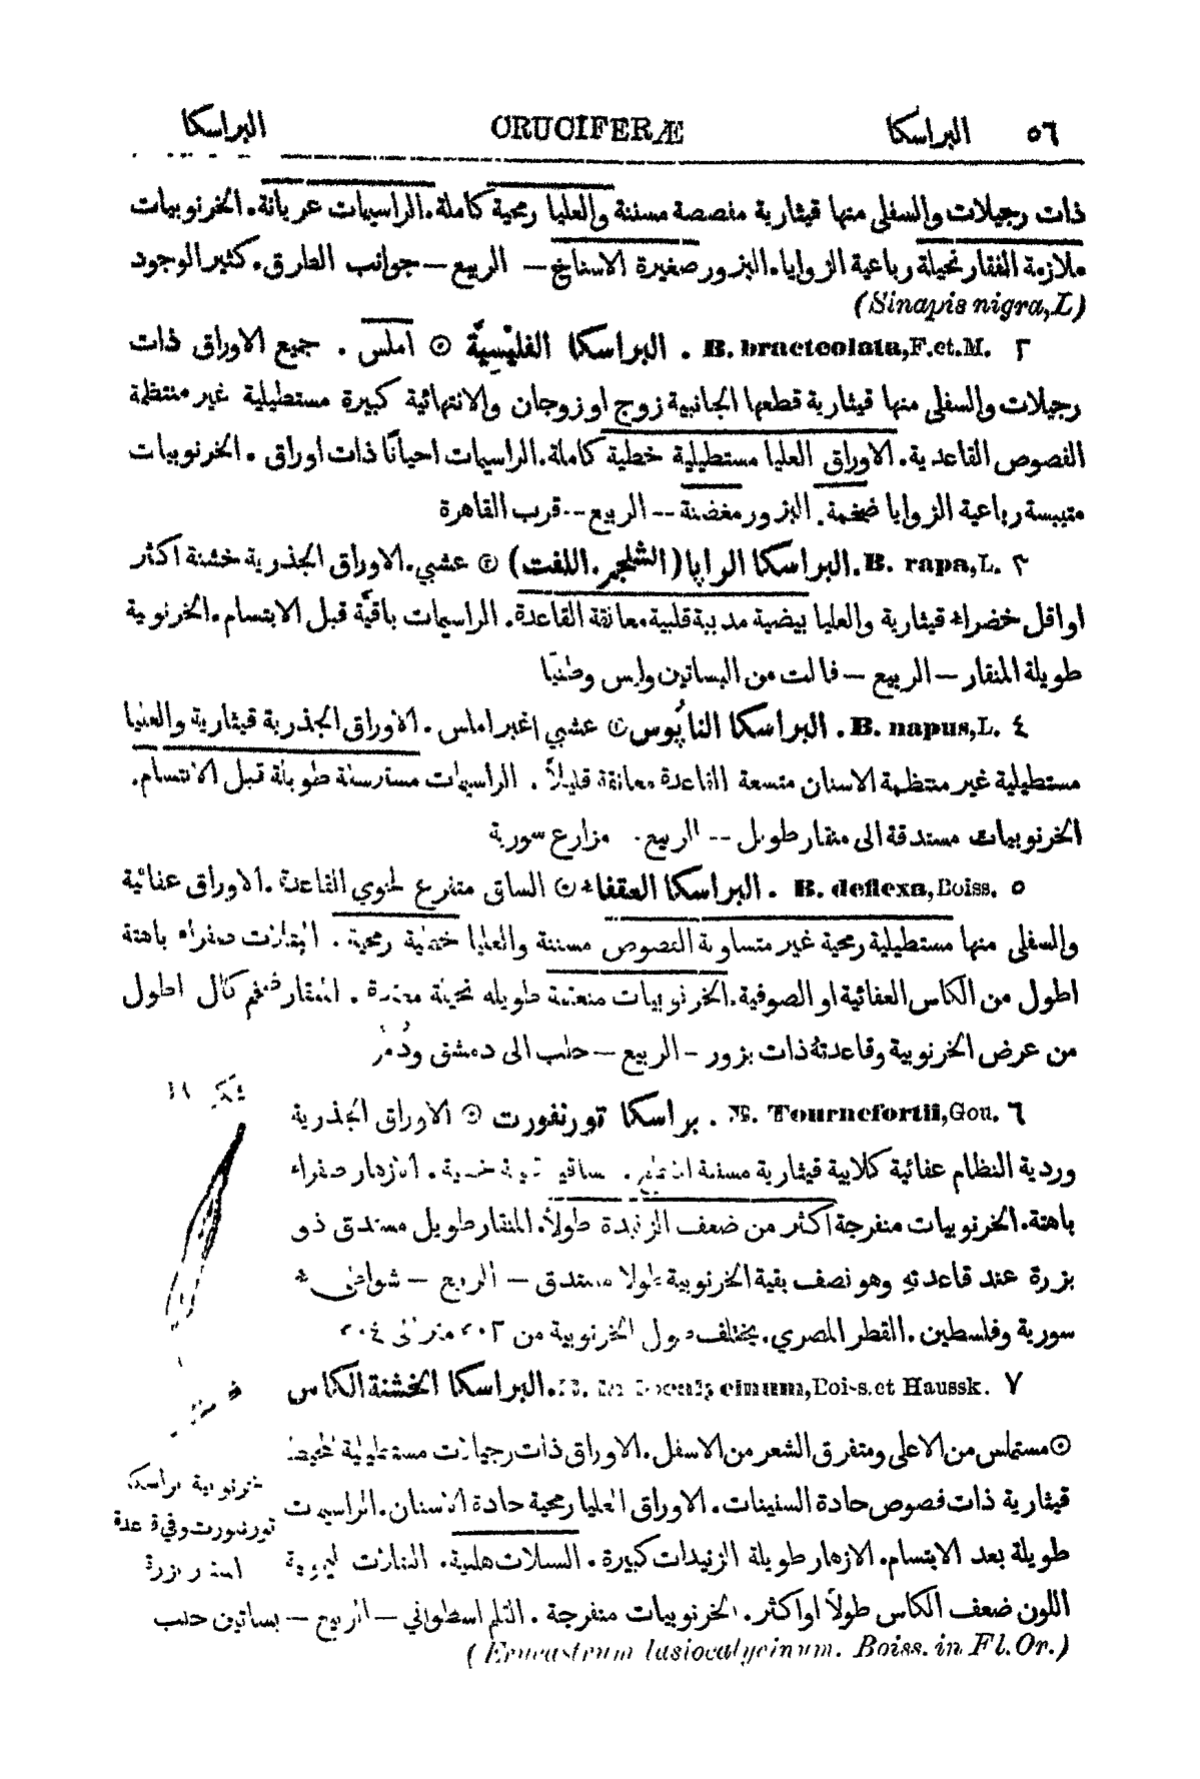 ٥٦ البراسكا CRUCIFERÆ البراسكا
ذات رجيلات والسفلى منها قيثارية مفصصة مسننة والعليا رمحية كاملة. الراسيمات عريانة. الخرنوبيات
ملازمة الفقار نحيلة رباعية الزوايا. البزور صغيرة الاسناخ — الربيع — جوانب الطرق. كثير الوجود
(Sinapis nigra, L)
٢ B. bracteolata, F. et. M. . البراسكا الفليْسيَّة ⊙ املس . جميع الاوراق ذات
رجيلات والسفلى منها قيثارية قطعها الجانبية زوج او زوجان والانتهائية كبيرة مستطيلية غير منتظمة
الفصوص القاعدية. الاوراق العليا مستطيلية خطية كاملة. الراسيمات احيانًا ذات اوراق . الخرنوبيات
متيبسة رباعية الزوايا ضخمة. البزور مغضنة -- الربيع -- قرب القاهرة
٣ B. rapa, L. البراسكا الراپا (الشلجم. اللفت) ② عشبي. الاوراق الجذرية خشنة اكثر
او اقل خضراء قيثارية والعليا بيضية مدببة قلبية معانقة القاعدة. الراسيمات باقية قبل الابتسام. الخرنوبية
طويلة المنقار — الربيع — فالت من البساتين وليس وطنيًا
٤ B. napus, L. . البراسكا الناپُوس عشبي اغبر املس . الاوراق الجذرية قيثارية والعليا
مستطيلية غير منتظمة الاسنان متسعة القاعدة معانقة قليلاً . الراسيمات مسترسلة طويلة قبل الابتسام.
الخرنوبيات مستدقة الى منقار طويل -- الربيع . مزارع سورية
٥ B. deflexa, Boiss. . البراسكا العقفاء الساق متفرع لحوي القاعدة . الاوراق عفائية
والسفلى منها مستطيلية رمحية غير متساوية الفصوص مسننة والعليا خطية رمحية . البتلات صفراء باهتة
اطول من الكاس العفائية او الصوفية. الخرنوبيات منعقفة طويله نحيلة . المنقار ضخم كال اطول
من عرض الخرنوبية وقاعدتهُ ذات بزور — الربيع — حلب الى دمشق ودُمَّر
شكل ٤١
٦ B. Tournefortii, Gou. . براسكا تورنفورت ⊙ الاوراق الجذرية
وردية النظام عفائية كلابية قيثارية مسننة . ساقي . الازهار صفراء
باهتة. الخرنوبيات منفرجة اكثر من ضعف الزنيدة طولاً. المنقار طويل مستدق ذو
بزرة عند قاعدتهِ وهو نصف بقية الخرنوبية طولا مستدق — الربيع — شواطىء
سورية وفلسطين. القطر المصري. يختلف طول الخرنوبية من
٧ Boiss. et Haussk. البراسكا الخشنة الكاس
⊙ مستملس من الاعلى ومتفرق الشعر من الاسفل. الاوراق ذات رجيلات مستطيلية
قيثارية ذات فصوص حادة السنينات. الاوراق العليا رمحية حادة الاسنان. الراسيمات
طويلة بعد الابتسام. الازهار طويلة الزنيدات كبيرة. السبلات هلبية. البتلات ليمونية
اللون ضعف الكاس طولاً او اكثر. الخرنوبيات منفرجة . القلم اسطواني — الربيع — بساتين حلب
(Erucastrum lasiocalycinum. Boiss. in Fl. Or.)
خرنوبية براسكا
تورنفورت وفي قاعدة
بزرة